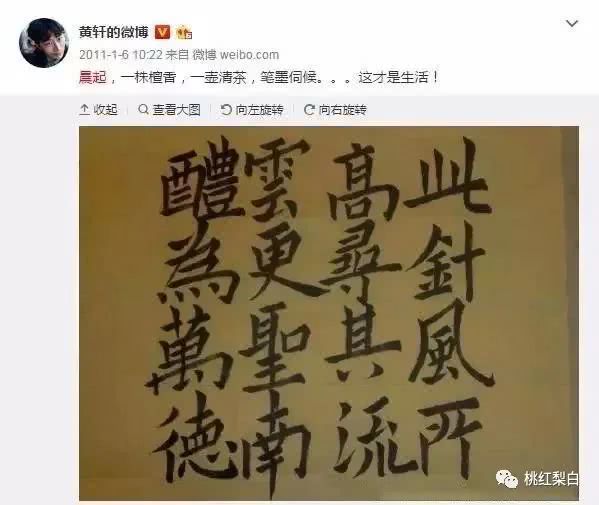 黄轩的微博
2011-1-6 10:22 来自 微博 weibo.com
晨起，一株檀香，一壶清茶，笔墨伺候。。。这才是生活！
收起 查看大图 向左旋转 向右旋转
此針風所
高尋其流
雲更聖南
醴為萬德
桃红梨白